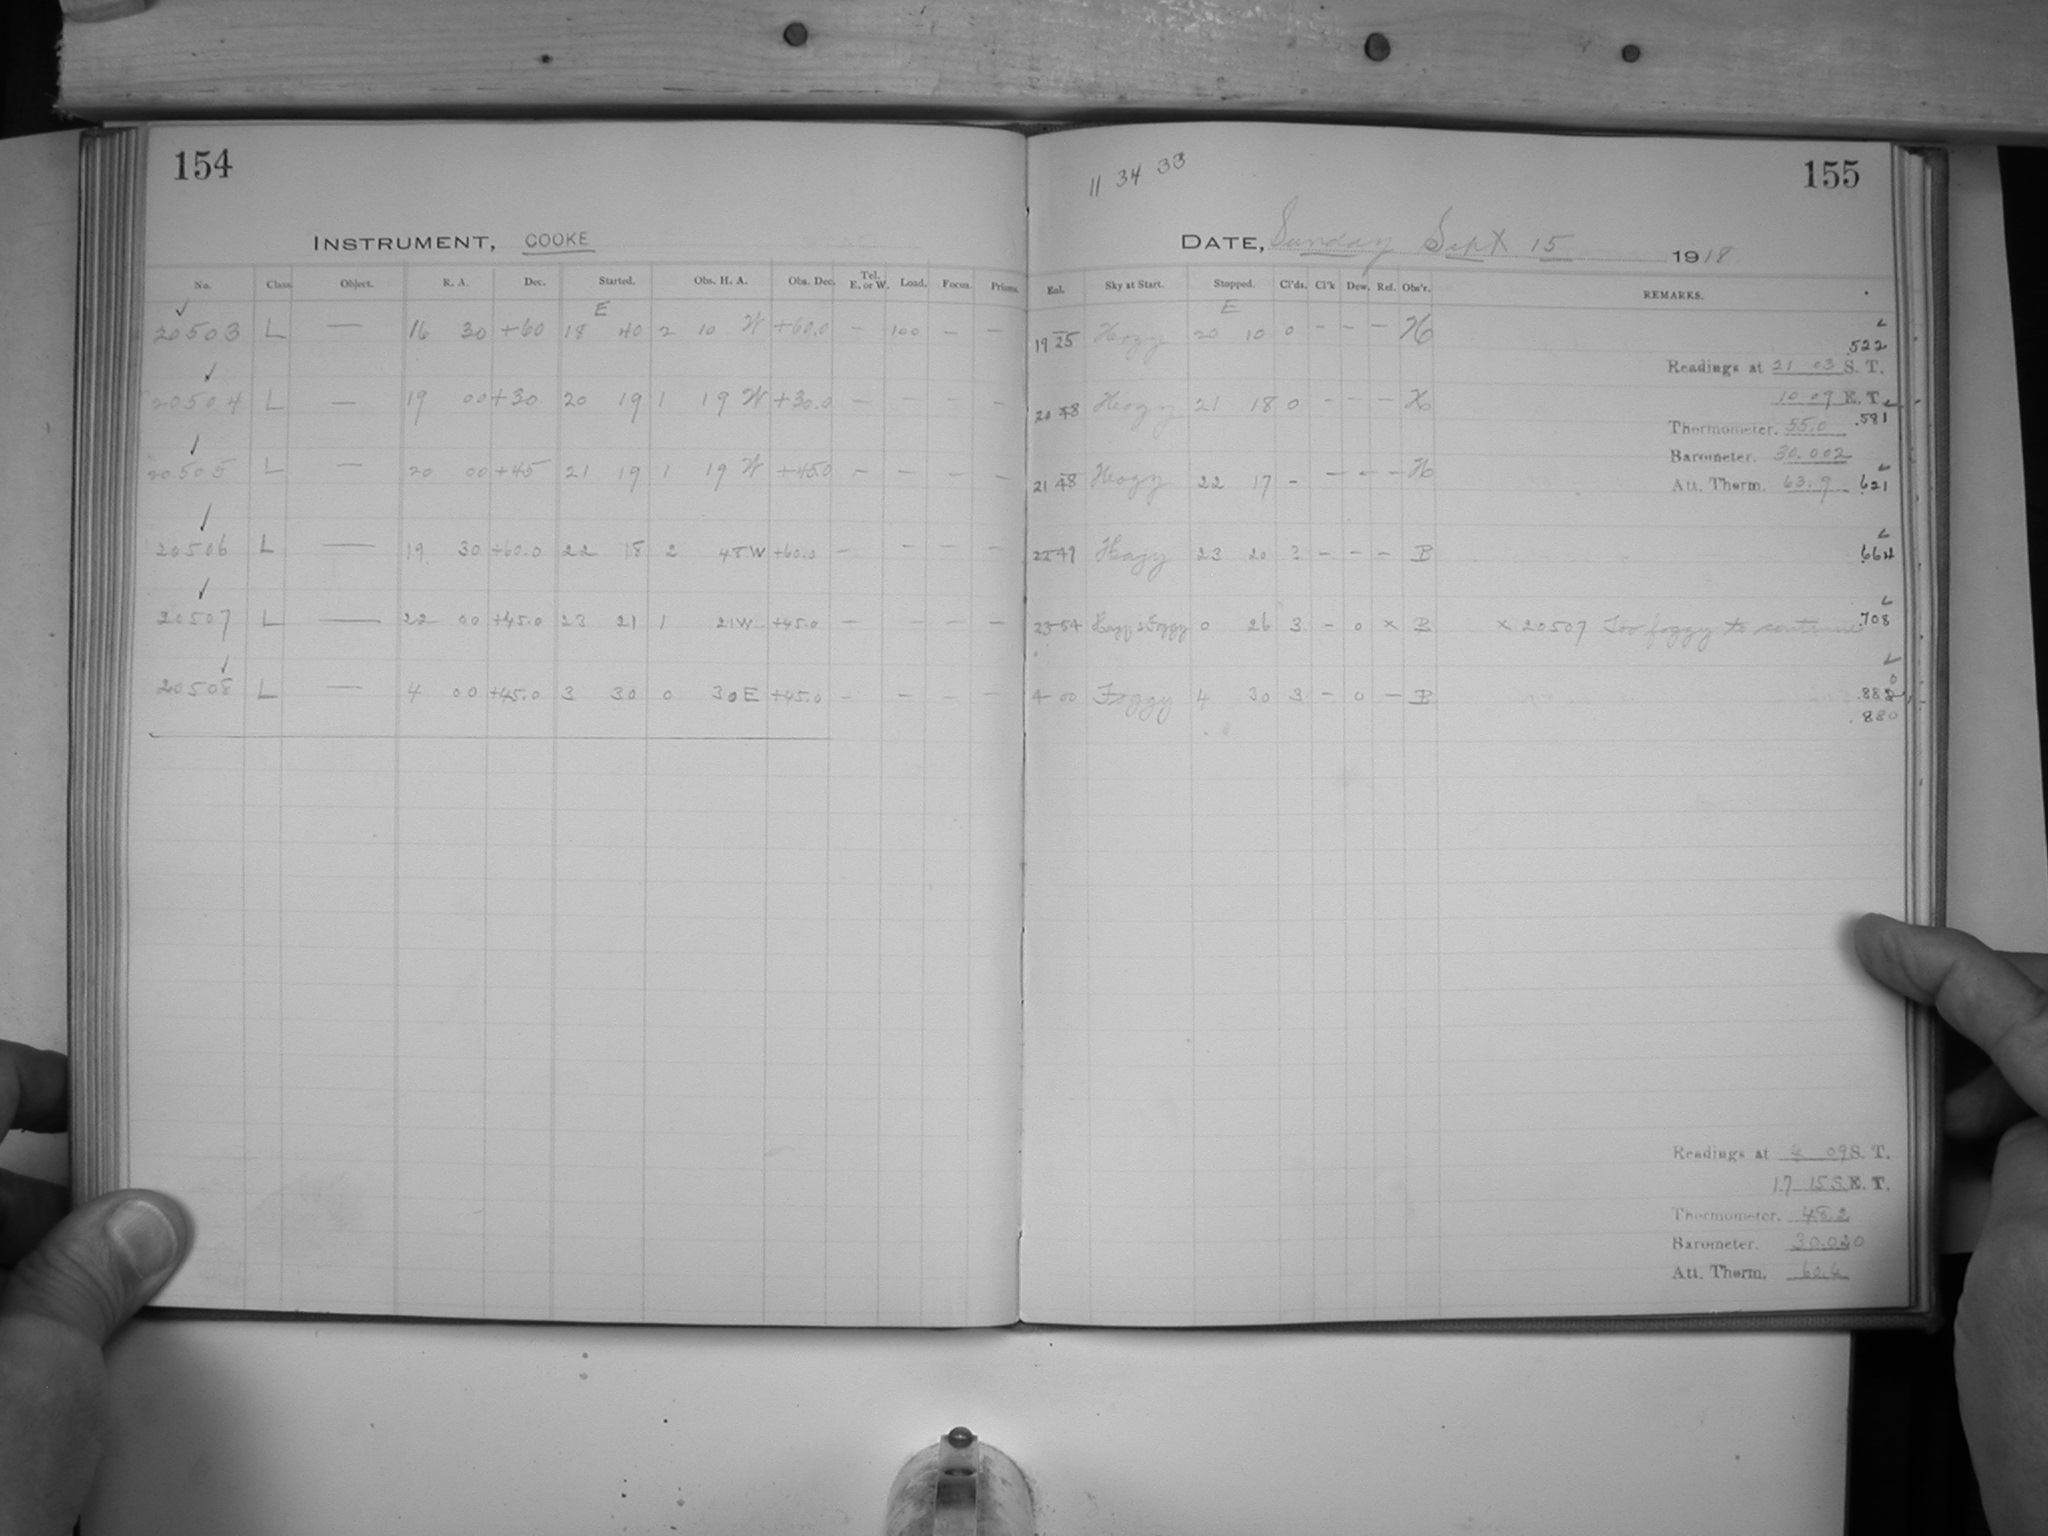 154
INSTRUMENT, COOKE
No. Class. Object. R. A. Dec. Started. Obs. H. A. Obs. Dec. Tel. E. or W. Load. Focus. Prisms.
E
20503 L — 16 30 +60 18 40 2 10 W +60.0 — 100 — —
20504 L — 19 00 +30 20 19 1 19 W +30.0 — — — —
20505 L — 20 00 +45 21 19 1 19 W +45.0 — — — —
20506 L — 19 30 +60.0 22 18 2 48 W +60.0 — — — —
20507 L — 22 00 +45.0 23 21 1 21 W +45.0 — — — —
20508 L — 4 00 +45.0 3 30 0 30 E +45.0 — — — —
11 34 33
155
DATE, Sunday Sept 15 1918
Sky at Start. Stopped. Cl'ds. Cl'k Dew. Ref. Obs'r. REMARKS.
E
19 25 Hazy 20 10 0 — — — H .522
Readings at 21 03 S. T.
10 09 E. T.
20 48 Hazy 21 18 0 — — — H .581
Thermometer. 55.0
Barometer. 30.002
21 48 Hazy 22 17 - — — — H .621
Att. Therm. 63.9
22 49 Hazy 23 20 2 — — — B .664
23 54 Hazy & Foggy 0 26 3 — 0 × B × 20507 Too foggy to continue .708
4 00 Foggy 4 30 3 — 0 — B
.880
Readings at 4 09 S. T.
17 15 S.E. T.
Thermometer. 48.2
Barometer. 30.020
Att. Therm.